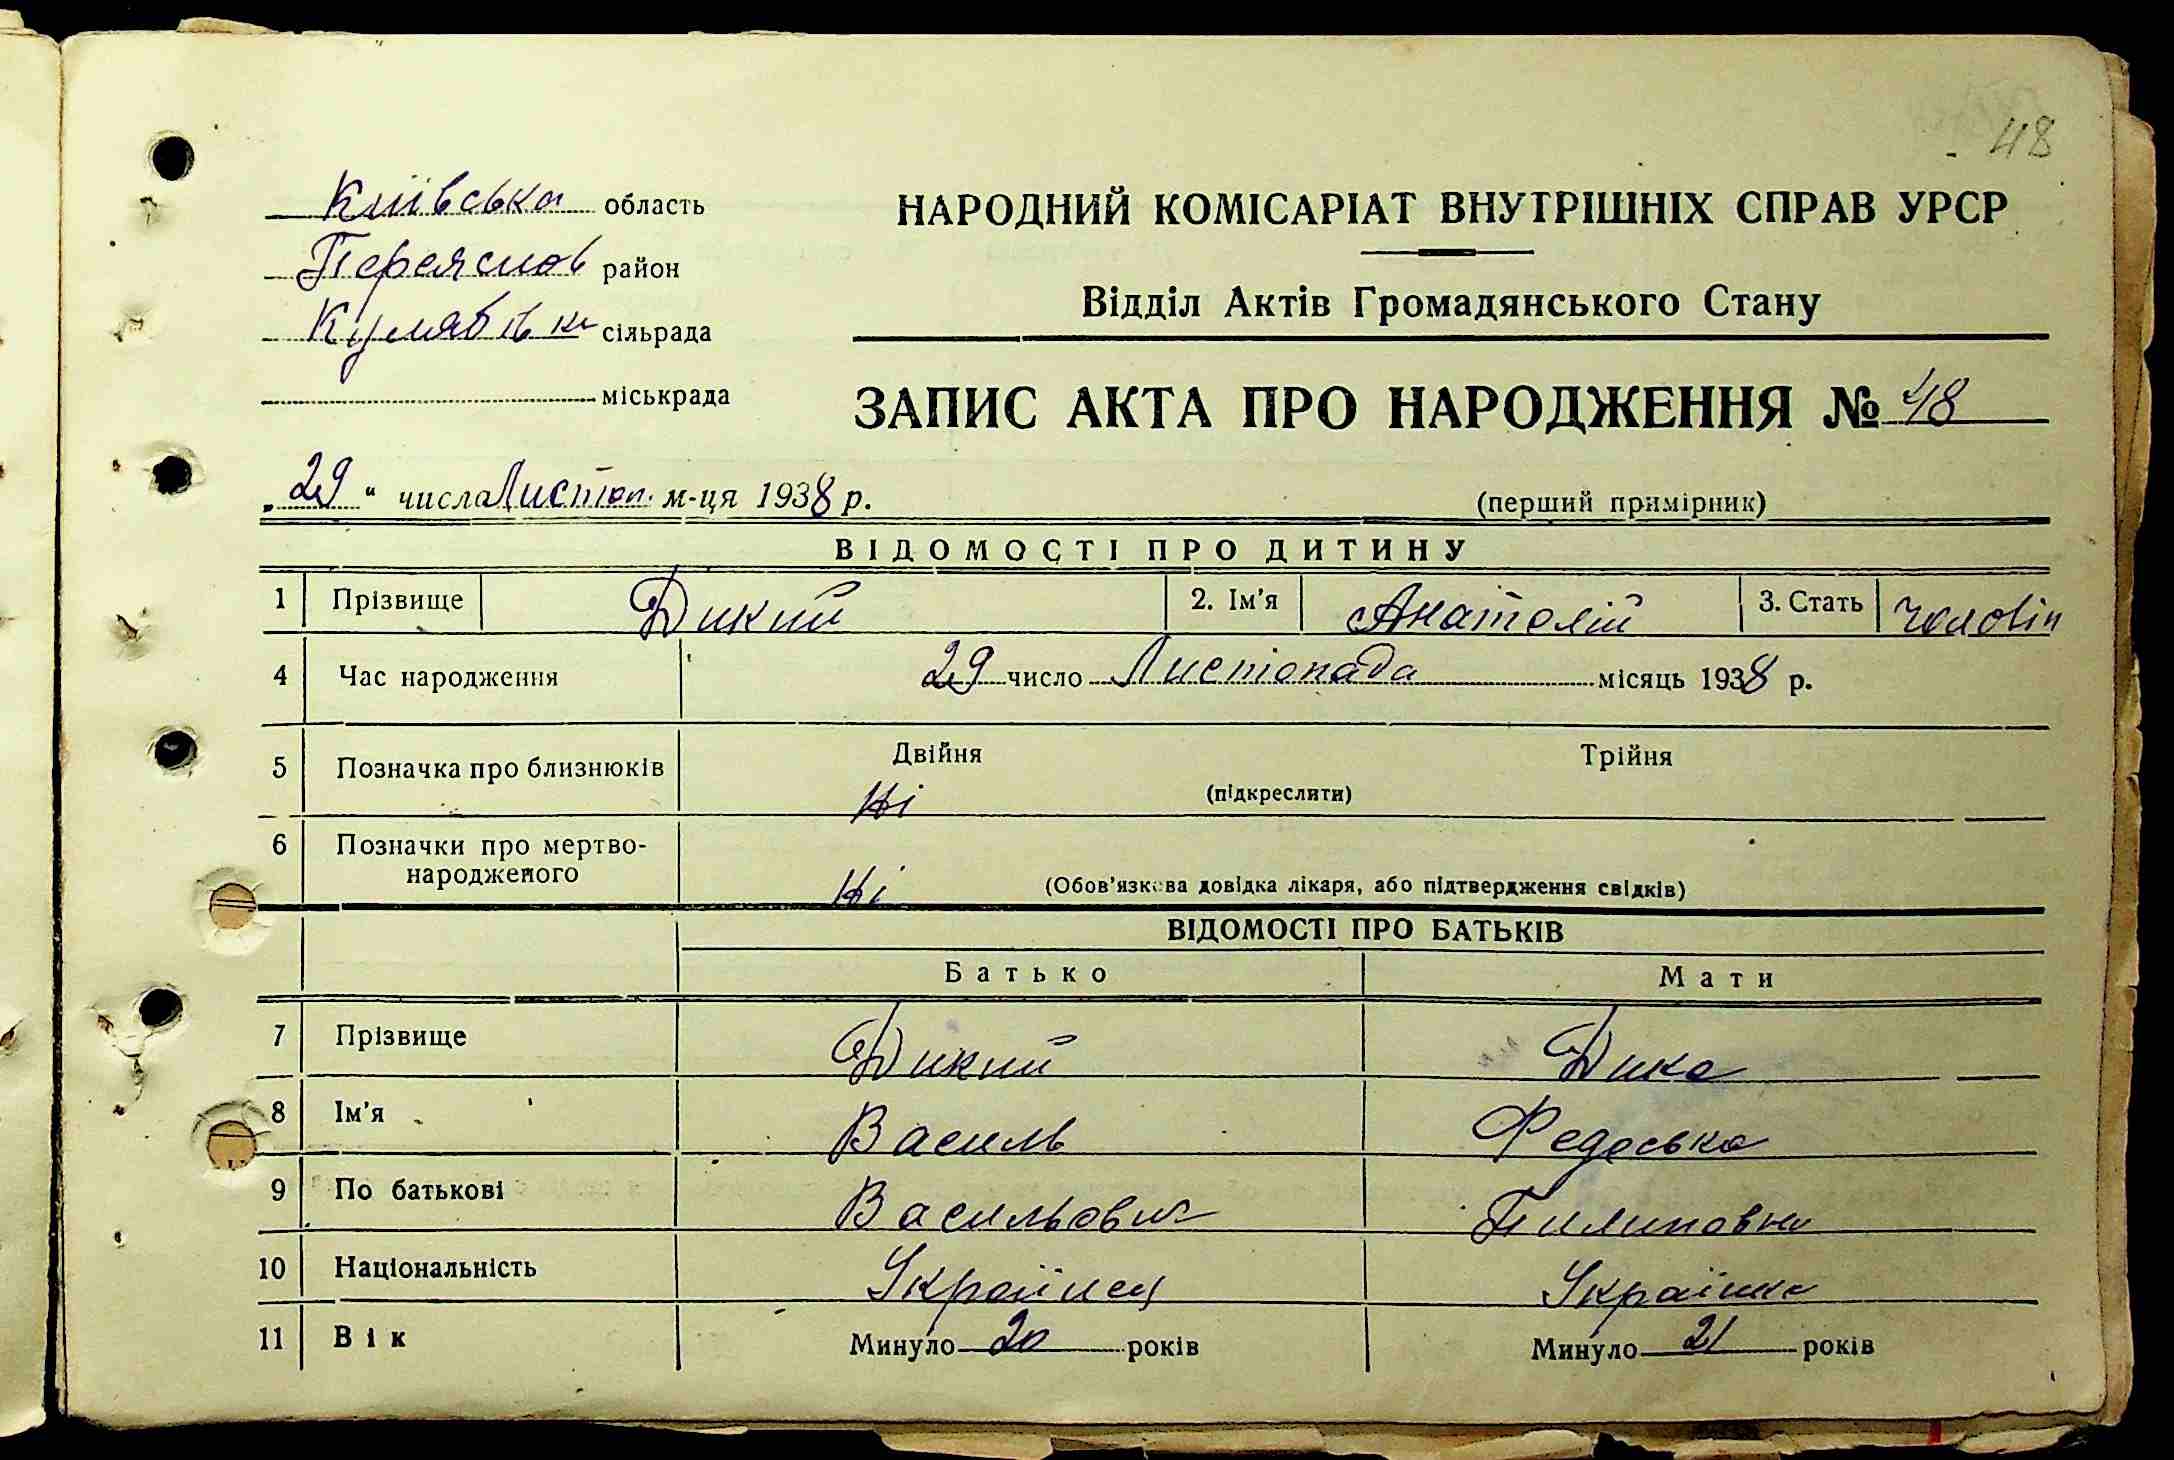 48
Київська область
НАРОДНИЙ КОМІСАРІАТ ВНУТРІШНІХ СПРАВ УРСР
Переяслов район
Відділ Актів Громадянського Стану
Кулябівк сільрада
міськрада
ЗАПИС АКТА ПРО НАРОДЖЕННЯ № 48
„29" числа Листоп. м-ця 1938 р.
(перший примірник)
ВІДОМОСТІ ПРО ДИТИНУ
1 Прізвище Дикий 2. Ім'я Анатолій 3. Стать чоловіч
4 Час народження 29 число Листопада місяць 1938 р.
5 Позначка про близнюків Двійня Трійня
Ні (підкреслити)
6 Позначки про мертво-
народженого Ні (Обов'язкова довідка лікаря, або підтвердження свідків)
ВІДОМОСТІ ПРО БАТЬКІВ
Батько Мати
7 Прізвище Дикий Дика
8 Ім'я Василь Федоська
9 По батькові Васильович Пилиповна
10 Національність Українец Українка
11 Вік Минуло 20 років Минуло 21 років